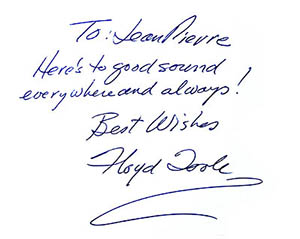 To: Jean Pierre
Here's to good sound
everywhere and always!
Best Wishes
Floyd Toole